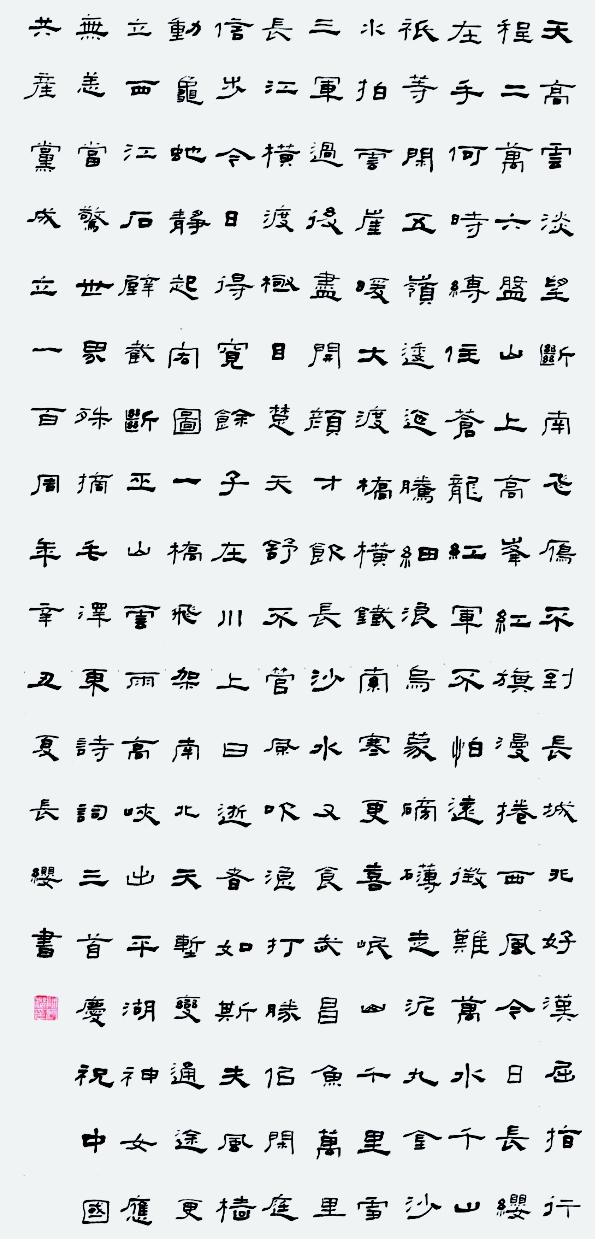 天高雲淡望斷南飞鴈不到長城非好漢屈指行
程二萬六盤山上高峯紅旗漫捲西風令日長纓
在手何時縛住蒼龍紅軍不怕遠徵難萬水千山
祇等閑五嶺逶迤騰細浪烏蒙磅礴走泥丸金沙
水拍雲崖暖大渡橋橫鐵索寒更喜岷山千里雪
三軍過後盡開顏才飲長沙水又食武昌魚萬里
長江橫渡極目楚天舒不管風吹浪打勝佀閑庭
信步今日得寬餘子在川上曰逝者如斯夫風檣
動龜虵靜起宏圖一橋飛架南北天塹變通途更
立西江石壁截斷巫山雲雨高峽出平湖神女應
無恙當驚世界殊摘毛澤東詩詞三首慶祝中國
共産黨成立一百周年辛丑夏長纓書